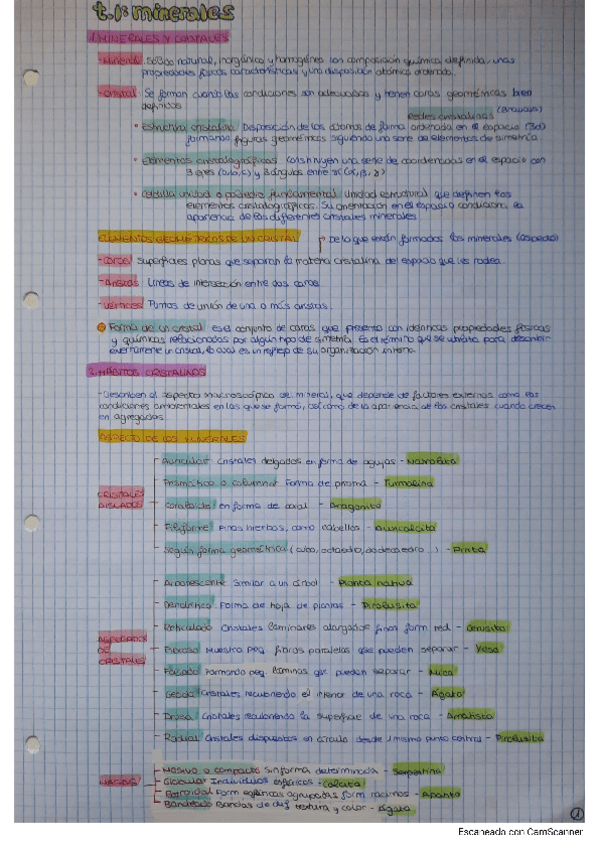 t.1: minerales
1. MINERALES Y CRISTALES
- Mineral: Sólido natural, inorgánico y homogéneo con composición química definida, unas
propiedades físicas características y una disposición atómica ordenada.
- Cristal: Se forman cuando las condiciones son adecuadas y tienen caras geométricas bien
definidas
Redes cristalinas (Bravais)
• Estructura cristalina: Disposición de los átomos de forma ordenada en el espacio (3d)
formando figuras geométricas siguiendo una serie de elementos de simetría.
• Elementos cristalográficos: Construyen una serie de coordenadas en el espacio con
3 ejes (a,b,c) y 3 ángulos entre sí (α, β, γ)
• Celdilla unidad o poliedro fundamental: Unidad estructural que definen los
elementos cristalográficos. Su orientación en el espacio condiciona la
apariencia de los diferentes cristales minerales.
ELEMENTOS GEOMÉTRICOS DE UN CRISTAL
De lo que están formados los minerales (aspecto)
- Caras: Superficies planas que separan la materia cristalina del espacio que les rodea.
- Aristas: Líneas de intersección entre dos caras
- Vértices: Puntos de unión de una o más aristas.
Forma de un cristal: es el conjunto de caras que presenta con idénticas propiedades físicas
y químicas relacionadas por algún tipo de simetría. Es el término que se utiliza para describir
externamente un cristal, lo cual es un reflejo de su organización interna.
2. HÁBITOS CRISTALINOS
- Describen el aspecto macroscópico del mineral, que depende de factores externos como las
condiciones ambientales en las que se formó, así como de la apariencia de los cristales cuando crecen
en agregados.
ASPECTO DE LOS MINERALES
CRISTALES AISLADOS
Acicular: Cristales delgados en forma de agujas - Natrolita
Prismático o columnar: Forma de prisma - Turmalina
Coraloide: en forma de coral - Aragonito
Filiforme: Finos hierbos, como cabellos - Auricalcita
Según forma geométrica (cubo, octaedro, dodecaedro...) - Pirita
AGREGADOS DE CRISTALES
Arborescente: Similar a un árbol - Planta nativa
Dendrítico: Forma de hoja de plantas - Pirolusita
Reticulado: Cristales laminares alargados finos form red - Cerusita
Fibroso: Muestra peq fibras paralelas que pueden separar - Yeso
Foliado: Formando peq láminas que pueden separar - Mica
Geoda: Cristales recubriendo el interior de una roca - Ágata
Drusa: Cristales recubriendo la superficie de una roca - Amatista
Radial: Cristales dispuestos en círculo desde 1 mismo punto central - Pirolusita
Masivo o compacto: Sin forma determinada - Serpentina
Globular: Individuos esféricos - Calcita
Botroidal: Form esféricas agrupadas form racimos - Apatito
Bandeado: Bandas de dif textura y color - Ágata
1
Escaneado con CamScanner